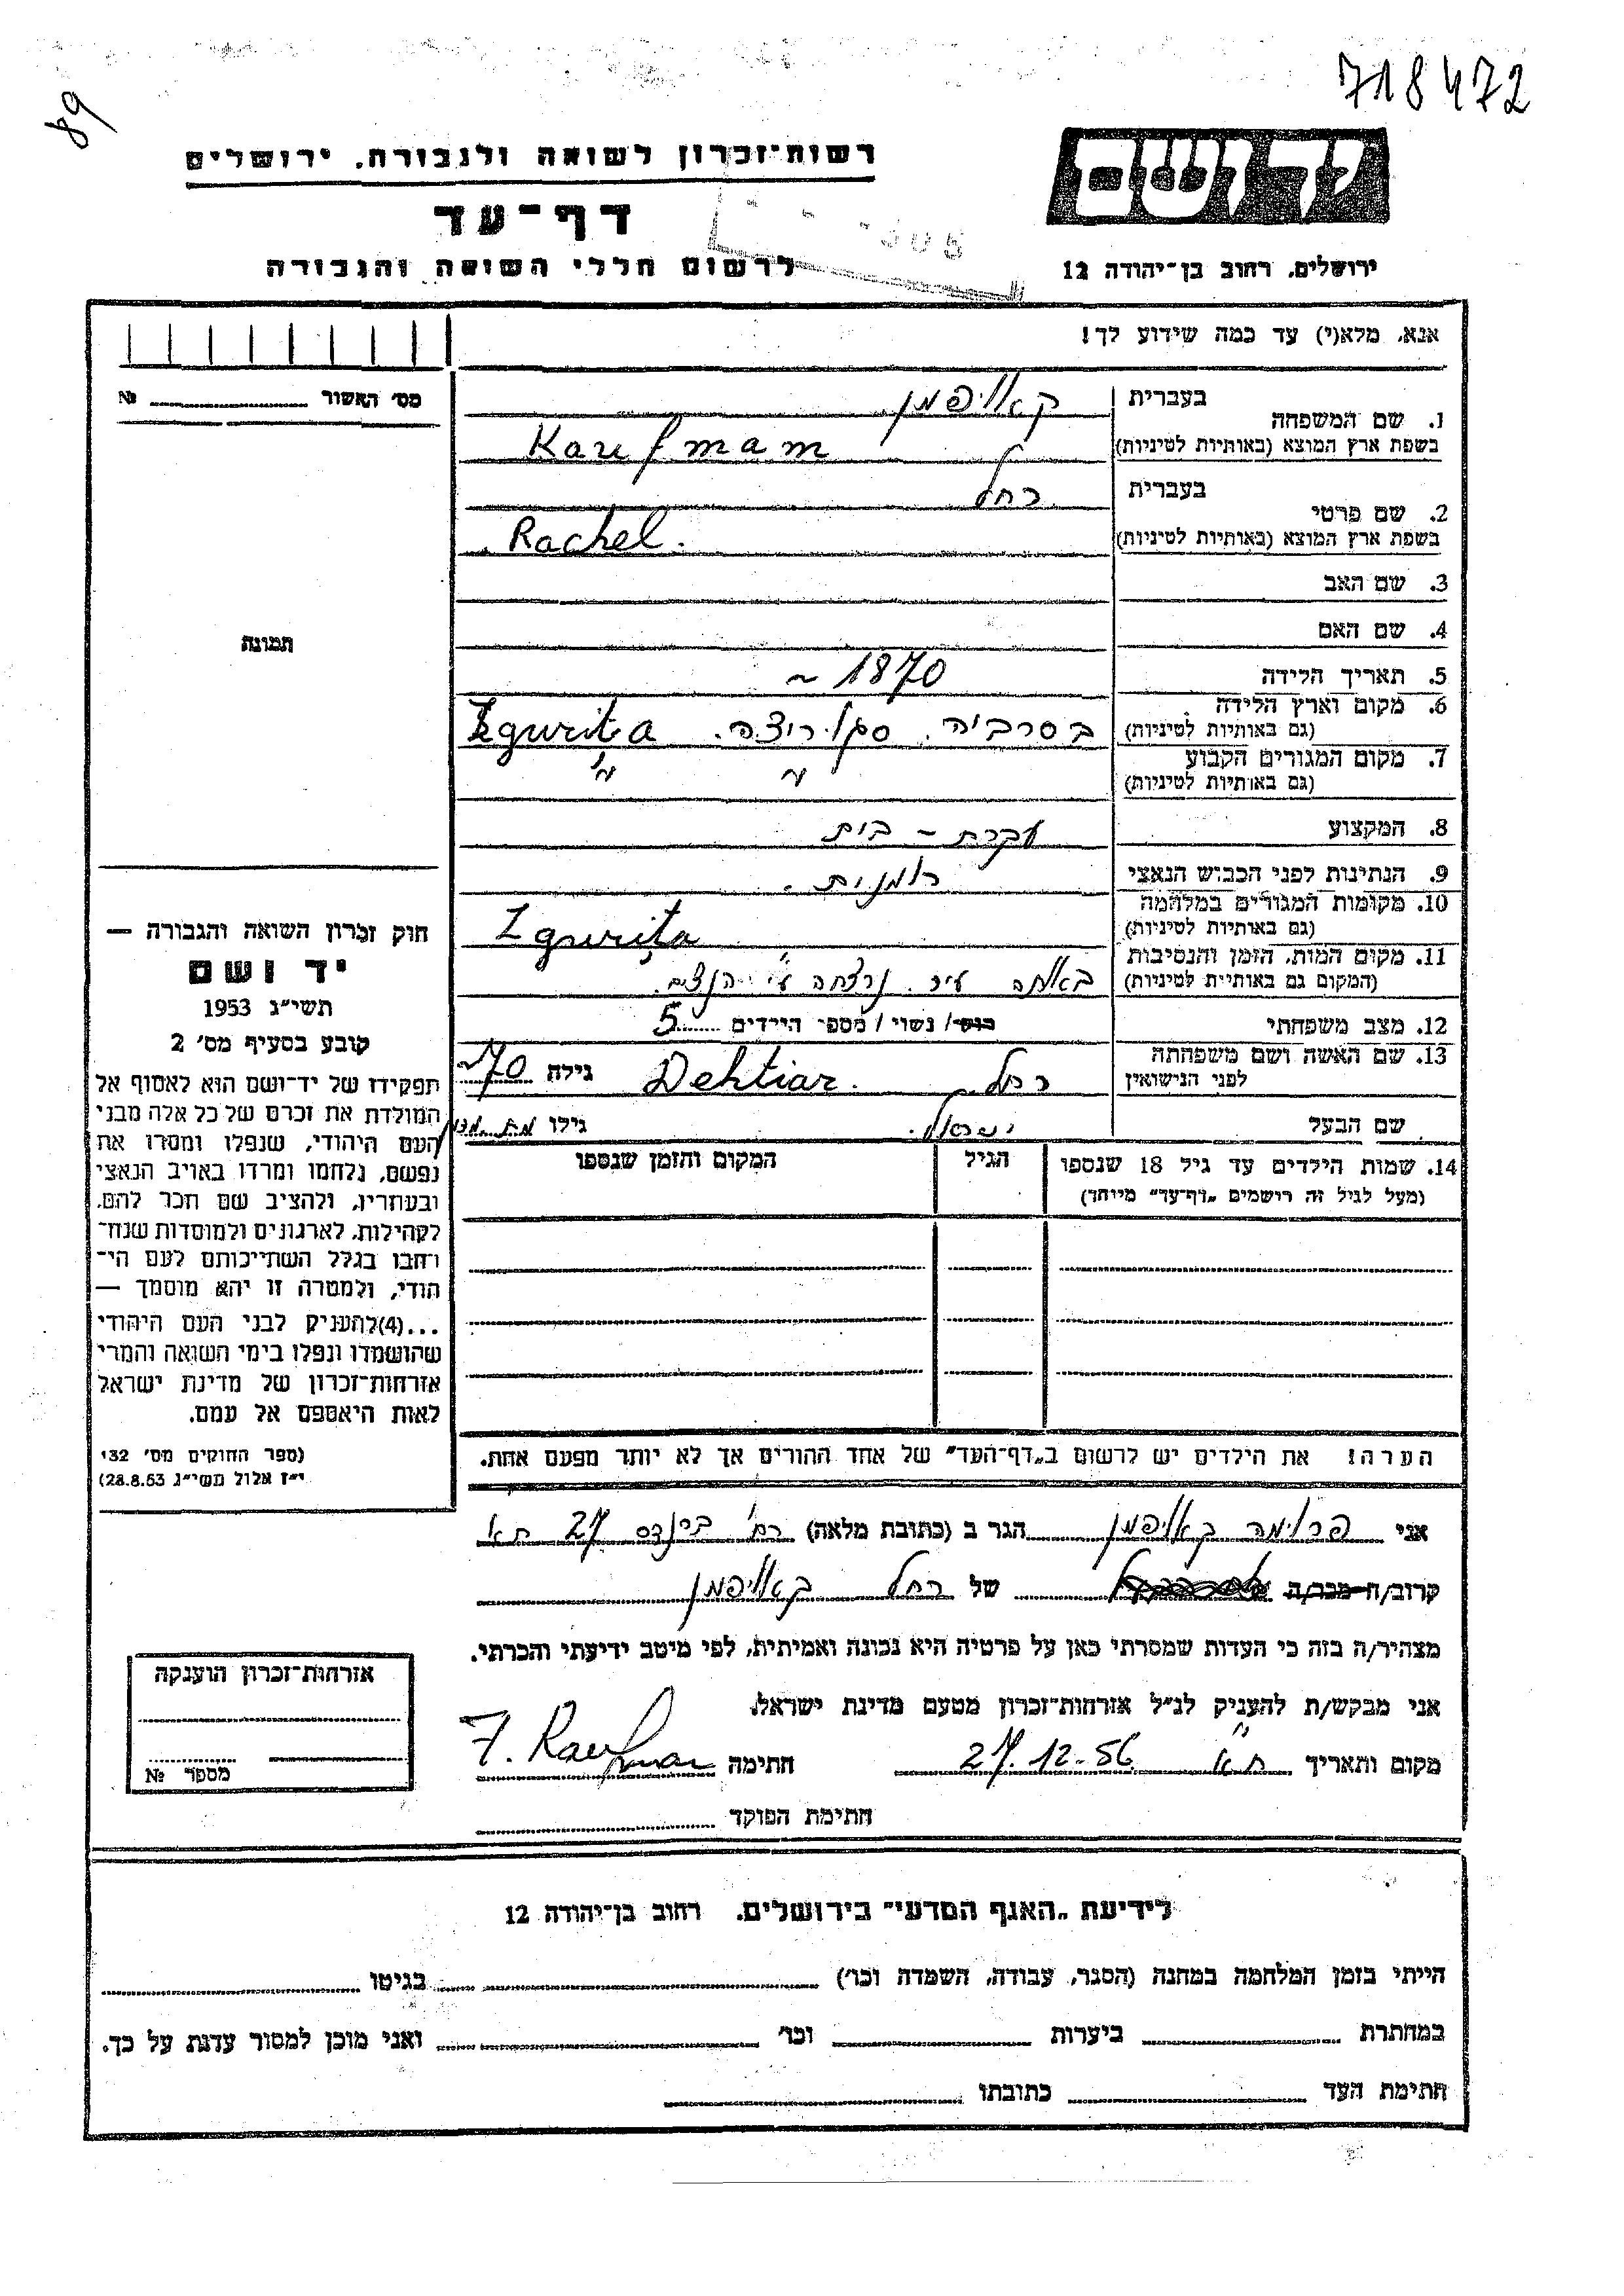 718472
89
יד ושם
רשות־זכרון לשואה ולגבורה. ירושלים
דף־עד
לרשום חללי השואה והגבורה
ירושלים, רחוב בן־יהודה 12
אנא, מלא(י) עד כמה שידוע לך!
מס׳ האשור ........ №
תמונה
1. שם המשפחה
בעברית קאופמן
בשפת ארץ המוצא (באותיות לטיניות) Kaufmam
2. שם פרטי
בעברית רחל
בשפת ארץ המוצא (באותיות לטיניות) Rachel.
3. שם האב
4. שם האם
5. תאריך הלידה ~ 1870
6. מקום וארץ הלידה
(גם באותיות לטיניות) בסרביה. סגוריצה. Zgurita
7. מקום המגורים הקבוע
(גם באותיות לטיניות) " "
8. המקצוע עקרת - בית
9. הנתינות לפני הכבוש הנאצי רומנית.
10. מקומות המגורים במלחמה
(גם באותיות לטיניות) Zgurița
11. מקום המות, הזמן והנסיבות
(המקום גם באותיות לטיניות) באותה עיר. נרצחה ע"י הנצים.
12. מצב משפחתי רוק/ נשוי / מספר הילדים 5
13. שם האשה ושם משפחתה
לפני הנישואין רחל Dehtiar. גילה ~70
שם הבעל ישראל. גילו
14. שמות הילדים עד גיל 18 שנספו
(מעל לגיל זה רושמים „דף־עד" מיוחד)
הגיל
המקום והזמן שנספו
הערה! את הילדים יש לרשום ב„דף־העד" של אחד ההורים אך לא יותר מפעם אחת.
חוק זכרון השואה והגבורה —
יד ושם
תשי״ג 1953
קובע בסעיף מס׳ 2
תפקידו של יד־ושם הוא לאסוף אל
המולדת את זכרם של כל אלה מבני
העם היהודי, שנפלו ומסרו את
נפשם, נלחמו ומרדו באויב הנאצי
ובעוזריו, ולהציב שם וזכר להם,
לקהילות, לארגונים ולמוסדות שנח־
רבו בגלל השתייכותם לעם הי־
הודי, ולמטרה זו יהא מוסמך —
...(4)להעניק לבני העם היהודי
שהושמדו ונפלו בימי השואה והמרי
אזרחות־זכרון של מדינת ישראל
לאות היאספם אל עמם.
(ספר החוקים מס׳ 132
י״ז אלול תשי״ג 28.8.53)
אני פרומה קאופמן הגר ב (כתובת מלאה) רח' 27 תא
קרוב/ה מכר/ה של רחל קאופמן
מצהיר/ה בזה כי העדות שמסרתי כאן על פרטיה היא נכונה ואמיתית, לפי מיטב ידיעתי והכרתי.
אני מבקש/ת להעניק לנ״ל אזרחות־זכרון מטעם מדינת ישראל.
מקום ותאריך ת"א 27.12.56 חתימה F. Kaufman
חתימת הפוקד
אזרחות־זכרון הוענקה
מספר №
לידיעת „האגף המדעי" בירושלים. רחוב בן־יהודה 12
הייתי בזמן המלחמה במחנה (הסגר, עבודה, השמדה וכו׳) בגיטו
במחתרת ביערות וכו׳ ואני מוכן למסור עדות על כך.
חתימת העד כתובתו